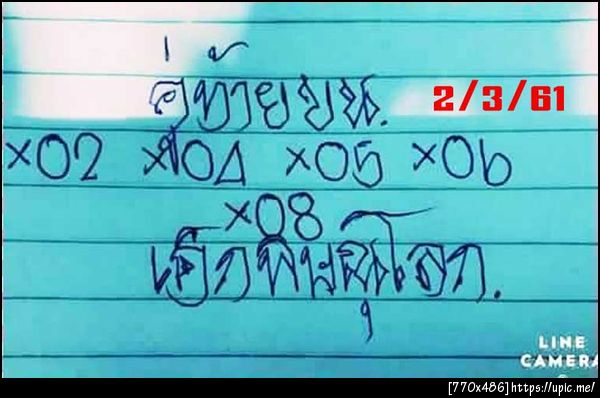 คู่ท้ายบน. 2/3/61
×02 ×04 ×05 ×06
×08
เอ็กพิษณุโลก.
LINE
CAMERA
[770x486]https://upic.me/